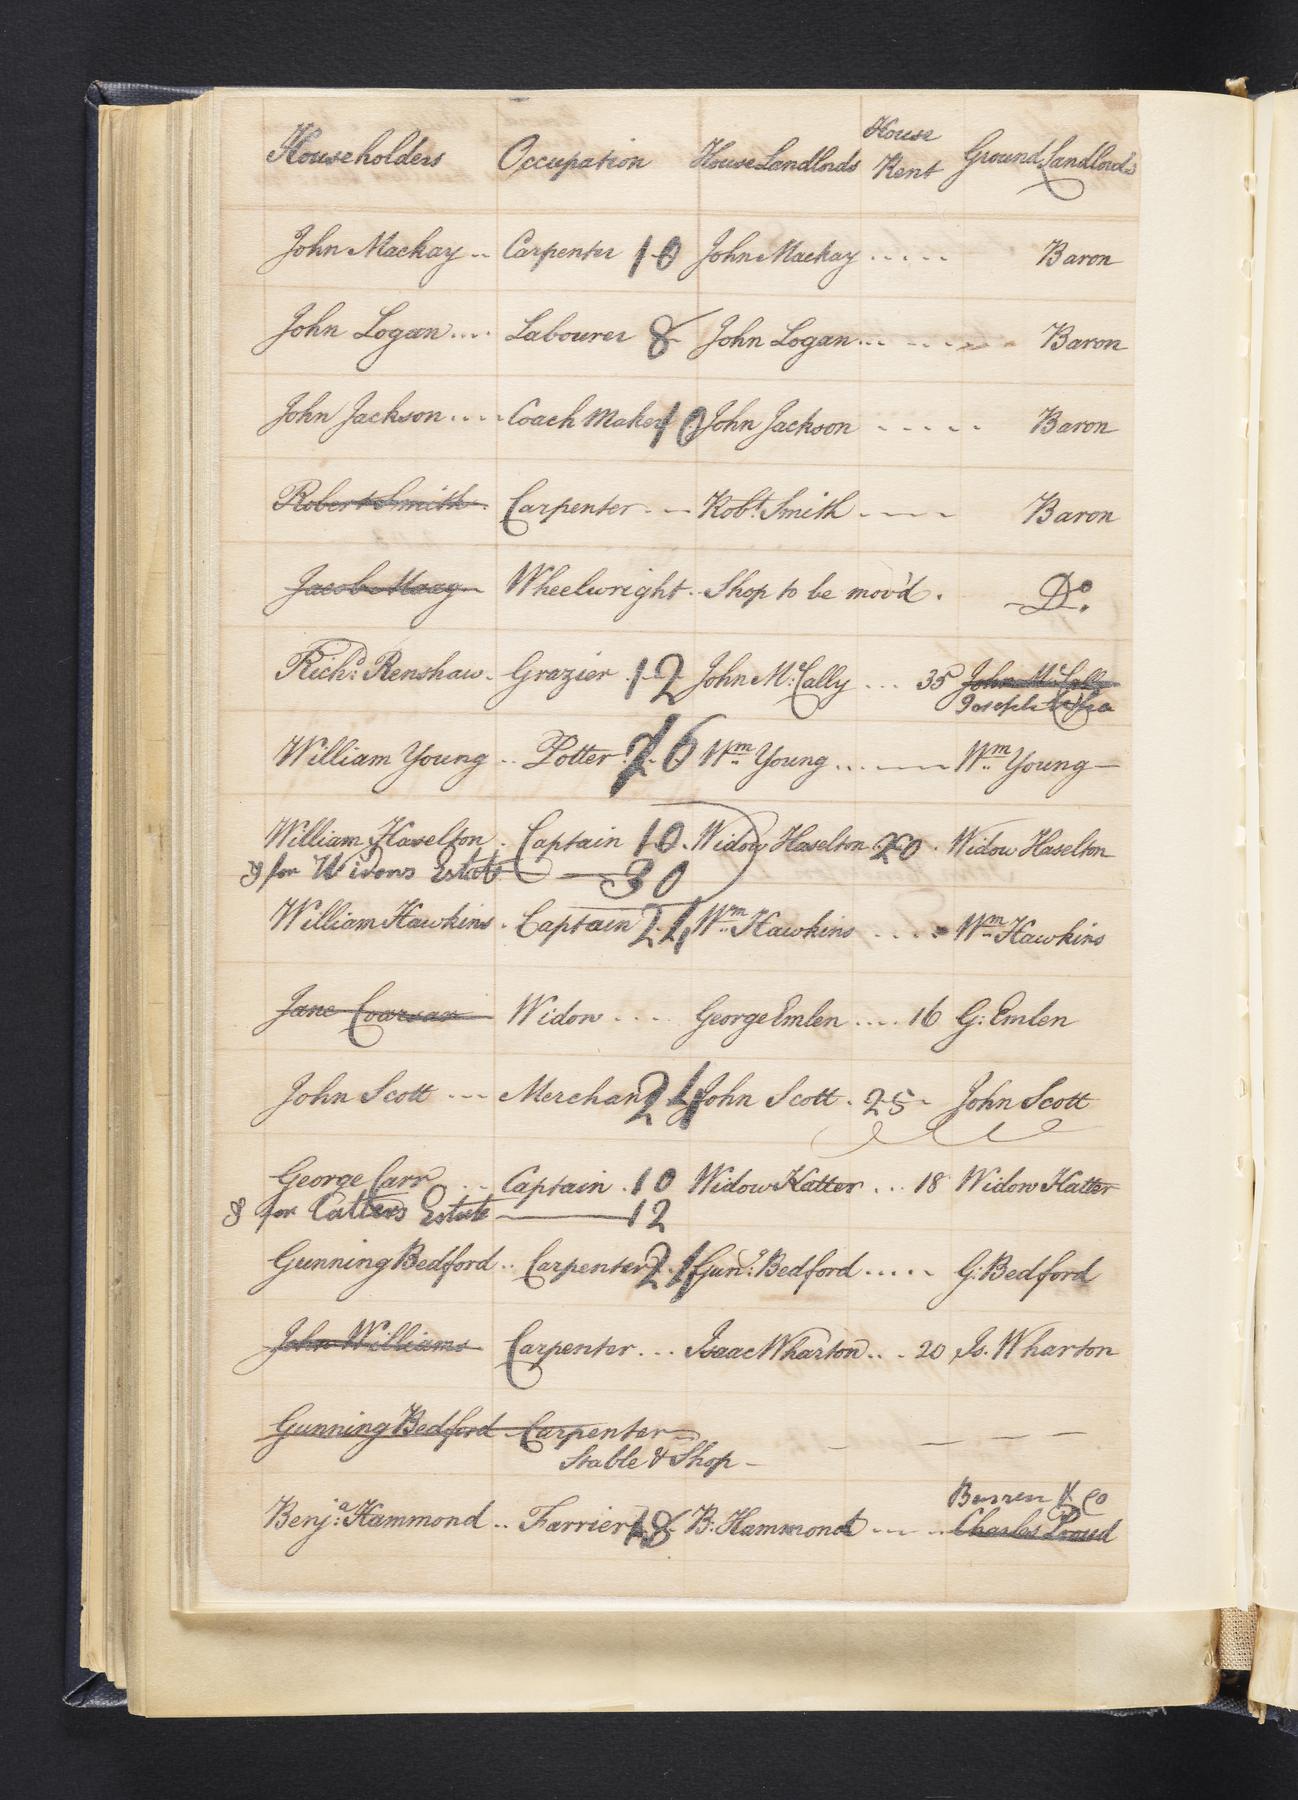 Householders Occupation House Landlords House Rent Ground Landlords
John Mackay .. Carpenter 10 John Mackay ..... Baron
John Logan .... Labourer 8 John Logan ... Baron
John Jackson .... Coach Maker 10 John Jackson ..... Baron
Robert Smith Carpenter .-- Robt. Smith ---- Baron
Jacob Maag Wheelwright .. Shop to be mov'd . Do.
Richd. Renshaw. Grazier 12 John Mc.Cally ... 35 John Mc.Cally
Joseph
William Young .. Potter 26 Wm. Young ... Wm. Young
William Haselton . Captain 10. Widow Haselton 20 . Widow Haselton
& for Widows Estate 30
William Hawkins . Captain 24 Wm. Hawkins .... Wm. Hawkins
Jane Widow .... George Emlen .... 16 G: Emlen
John Scott --- Merchant 24 John Scott . 25 - John Scott
George Carr .. Captain . 10 Widow Katter ... 18 Widow Katter
& for Catters Estate 12
Gunning Bedford .. Carpenter 24 Gung: Bedford ..... G: Bedford
John Williams Carpenter ... Isaac Wharton .. . 20 Is. Wharton
Gunning Bedford Carpenter
Stable & Shop -
& Co
Benja: Hammond .. Farrier 18 B: Hammond --- Charles Proud